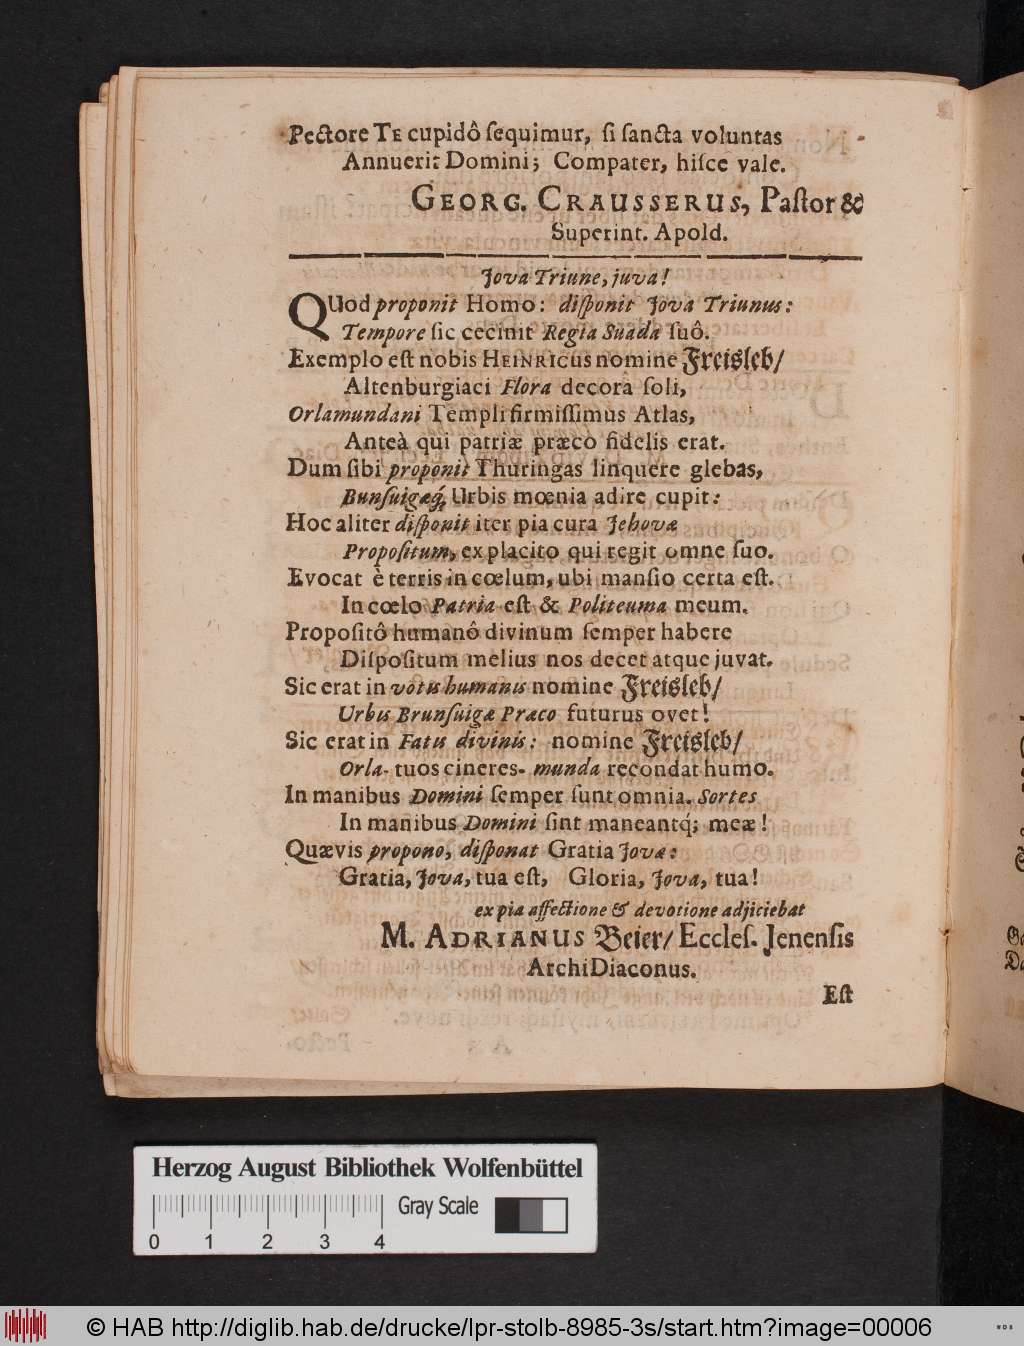 Pectore TE cupidô ſequimur, ſi ſancta voluntas
Annuerit Domini; Compater, hiſce vale.
GEORG. CRAUSSERUS, Paſtor &
Superint. Apold.
Jova Triune, juva!
QUod proponit Homo: diſponit Jova Triunus:
Tempore ſic cecinit Regia Suada ſuô.
Exemplo eſt nobis HEINRICUS nomine Freisleb/
Altenburgiaci Flora decora ſoli,
Orlamundani Templi firmiſſimus Atlas,
Anteà qui patriæ præco fidelis erat.
Dum ſibi proponit Thuringas linquere glebas,
Bunſuigæq́; Urbis mœnia adire cupit:
Hoc aliter diſponit iter pia cura Jehovæ
Propoſitum, ex placito qui regit omne ſuo.
Evocat è terris in cœlum, ubi manſio certa eſt.
In cœlo Patria eſt & Politeuma meum.
Propoſitô humanô divinum ſemper habere
Diſpoſitum melius nos decet atque juvat.
Sic erat in votis humanis nomine Freisleb/
Urbis Brunſuigæ Præco futurus ovet!
Sic erat in Fatis divinis: nomine Freisleb/
Orla- tuos cineres- munda recondat humo.
In manibus Domini ſemper ſunt omnia. Sortes
In manibus Domini ſint maneantq́; meæ!
Quævis propono, diſponat Gratia Jovæ:
Gratia, Jova, tua eſt, Gloria, Jova, tua!
ex pia affectione & devotione adjiciebat
M. ADRIANUS Beier/ Eccleſ. Jenenſis
ArchiDiaconus.
Eſt
Herzog August Bibliothek Wolfenbüttel
Gray Scale
0 1 2 3 4
© HAB http://diglib.hab.de/drucke/lpr-stolb-8985-3s/start.htm?image=00006